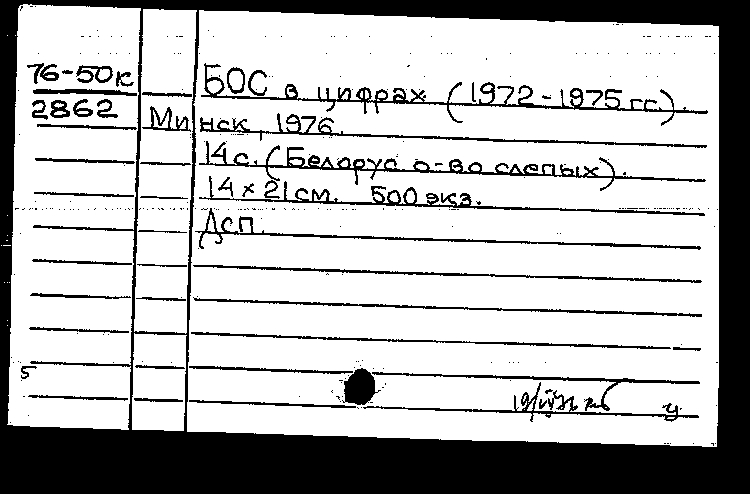 76-50к
2862
БОС в цифрах (1972-1975 гг.).
Минск, 1976.
14 с. (Белорус о-во слепых).
14 × 21 см. 500 экз.
Дсп.
5
у